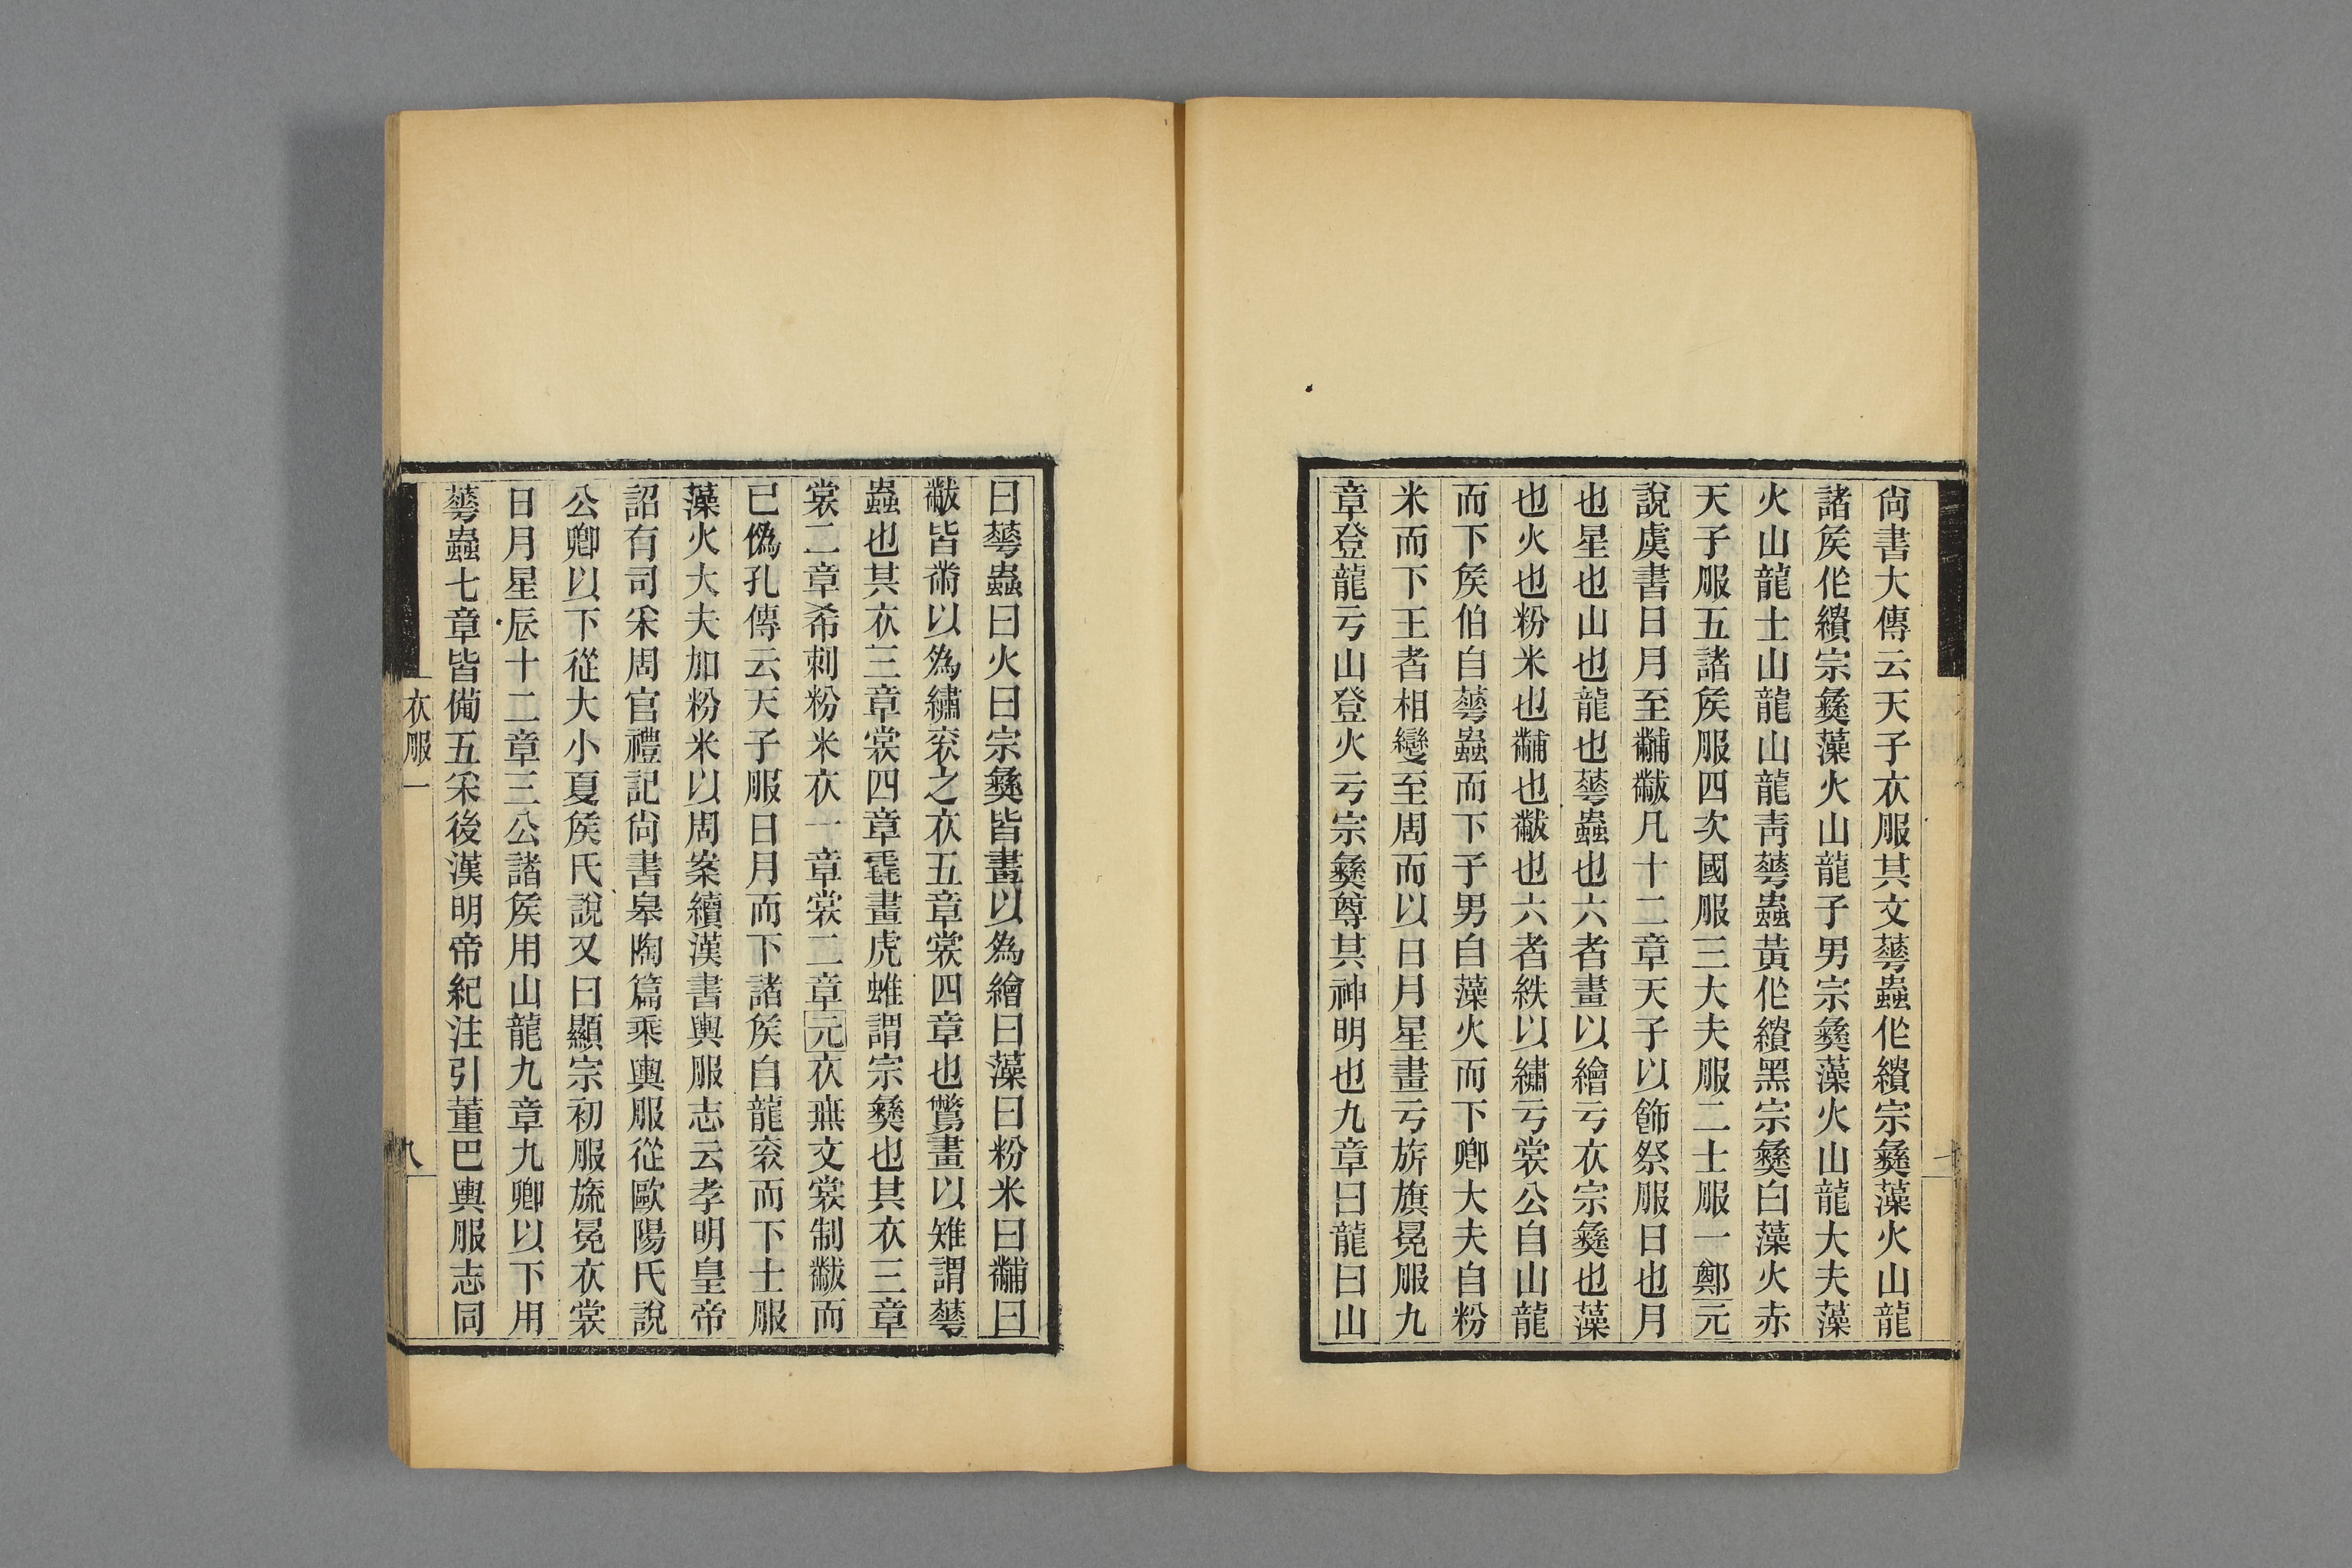 尙書大傳云天子衣服其文蕐蟲作繢宗彝藻火山龍
諸矦作繢宗彝藻火山龍子男宗彝藻火山龍大夫藻
火山龍士山龍山龍靑蕐蟲黃作繢黑宗彝白藻火赤
天子服五諸矦服四次國服三大夫服二士服一鄭元
說虞書日月至黼黻凡十二章天子以飾祭服日也月
也星也山也龍也蕐蟲也六者畫以繪亏衣宗彝也藻
也火也粉米也黼也黻也六者紩以繡亏裳公自山龍
而下矦伯自蕐蟲而下子男自藻火而下卿大夫自粉
米而下王者相變至周而以日月星畫亏旂旗冕服九
章登龍亏山登火亏宗彝尊其神明也九章曰龍曰山
曰蕐蟲曰火曰宗彝皆畫以為繪曰藻曰粉米曰黼曰
黻皆黹以為繡衮之衣五章裳四章也鷩畫以雉謂蕐
蟲也其衣三章裳四章毳畫虎蜼謂宗彝也其衣三章
裳二章希刺粉米衣一章裳二章元衣無文裳制黻而
已僞孔傳云天子服日月而下諸矦自龍衮而下士服
藻火大夫加粉米以周案續漢書輿服志云孝明皇帝
詔有司采周官禮記尙書皋陶篇乘輿服從歐陽氏說
公卿以下從大小夏矦氏說又曰顯宗初服旒冕衣裳
日月星辰十二章三公諸矦用山龍九章九卿以下用
蕐蟲七章皆備五采後漢明帝紀注引董巴輿服志同
衣服一
九